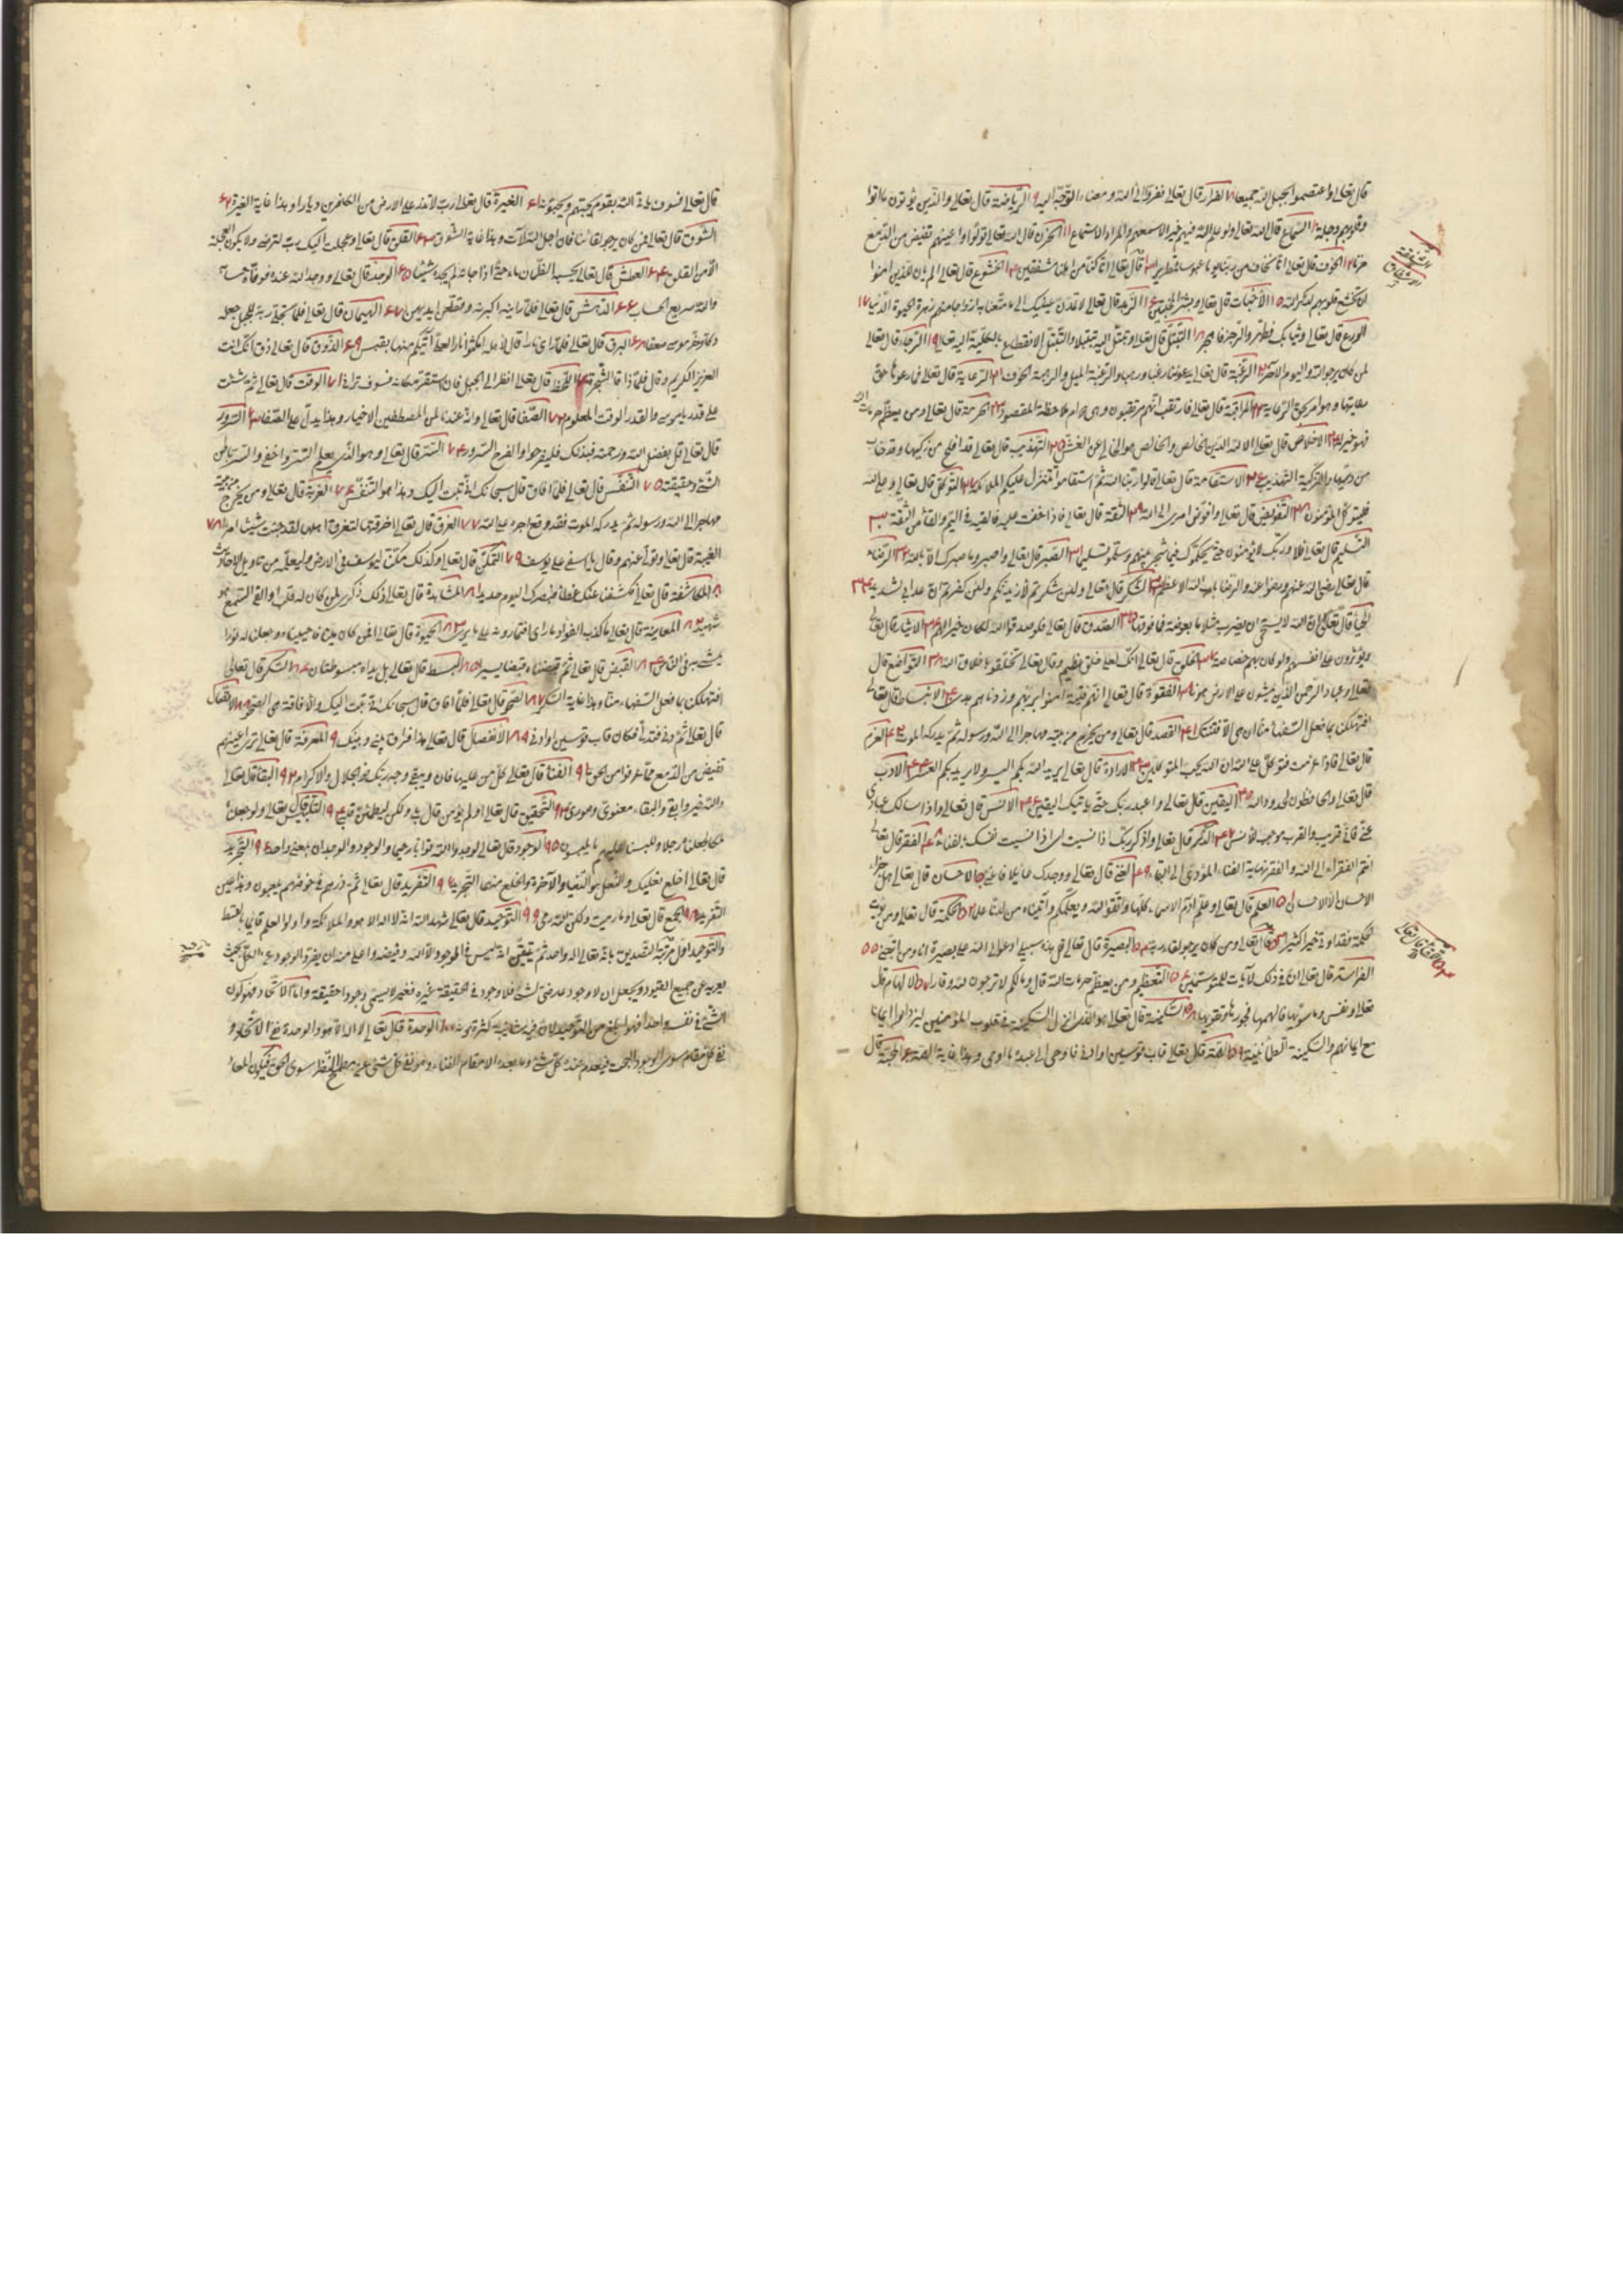 قال تعالى واعتصموا بحبل الله جميعا ٨ الفرار قال تعالى ففروا الى الله ومعناه التوجه اليه ٩ الرياضة قال تعالى والذين يؤتون ما اتوا
وقلوبهم وجلة ١٠ السماع قال الله تعالى ولو علم الله فيهم خيرا لاسمعهم والمراد الاستماع ١١ الحزن قال الله تعالى تولوا واعينهم تفيض من الدمع
حزنا ١٢ الخوف قال تعالى انا نخاف من ربنا يوما عبوسا قمطريرا ١٣ قال تعالى انا كنا من اهلنا مشفقين ١٤ الخشوع قال تعالى الم يان للذين امنوا
الشفقة
الاشفاق
ان تخشع قلوبهم لذكر الله ١٥ الاخبات قال تعالى وبشر المخبتين ١٦ الزهد قال تعالى لا تمدن عينيك الى ما متعنا به ازواجا منهم زهرة الحيوة الدنيا ١٧
الورع قال تعالى وثيابك فطهر والرجز فاهجر ١٨ التبتل قال تعالى وتبتل اليه تبتيلا والتبتل الانقطاع بالكلية اليه تعالى ١٩ الرجاء قال تعالى
لمن كان يرجو الله واليوم الآخر ٢٠ الرغبة قال تعالى يدعوننا رغبا ورهبا والرغبة الميل والرهبة الخوف ٢١ الرعاية قال تعالى فما رعوها حق
رعايتها وهو امر بحق الرعاية ٢٢ المراقبة قال تعالى فارتقب انهم مرتقبون وهى دوام ملاحظة المقصود ٢٣ الحرمة قال تعالى ومن يعظم حرمات الله
فهو خير له ٢٤ الاخلاص قال تعالى الا لله الدين الخالص والخالص هو الخالى عن الغش ٢٥ التهذيب قال تعالى قد افلح من زكيها وقد خاب
من دسيها والتزكية التهذيب ٢٦ الاستقامة قال تعالى قالوا ربنا الله ثم استقاموا تتنزل عليكم الملائكة ٢٧ التوكل قال تعالى وعلى الله
فليتوكل المؤمنون ٢٨ التفويض قال تعالى وافوض امرى الى الله ٢٩ الثقة قال تعالى فاذا خفت عليه فالقيه في اليم والقاء من الثقة ٣٠
التسليم قال تعالى فلا وربك لا يؤمنون حتى يحكموك فيما شجر بينهم وسلموا تسليما ٣١ الصبر قال تعالى واصبر وما صبرك الا بالله ٣٢ الرضاء
قال تعالى رضى الله عنهم ورضوا عنه والرضا باب الله الاعظم ٣٣ الشكر قال تعالى ولئن شكرتم لازيدنكم ولئن كفرتم ان عذابى لشديد ٣٤
الحيا قال تعالى ان الله لا يستحى ان يضرب مثلا ما بعوضة فما فوقها ٣٥ الصدق قال تعالى فلو صدقوا الله لكان خيرا لهم ٣٦ الايثار قال تعالى
ويؤثرون على انفسهم ولو كان بهم خصاصة ٣٧ الخلق قال تعالى انك لعلى خلق عظيم وقال تعالى تخلقوا باخلاق الله ٣٨ التواضع قال
تعالى وعباد الرحمن الذين يمشون على الارض هونا ٣٩ الفتوة قال تعالى انهم فتية امنوا بربهم وزدناهم هدى ٤٠ الانبساط قال تعالى
افتهلكنا بما فعل السفهاء منا ان هى الا فتنتك ٤١ القصد قال تعالى ومن يخرج من بيته مهاجرا الى الله ورسوله ثم يدركه الموت ٤٢ العزم
قال تعالى فاذا عزمت فتوكل على الله ان الله يحب المتوكلين ٤٣ الارادة قال تعالى يريد الله بكم اليسر ولا يريد بكم العسر ٤٤ الادب
قال تعالى والحافظون لحدود الله ٤٥ اليقين قال تعالى واعبد ربك حتى ياتيك اليقين ٤٦ الانس قال تعالى واذا سالك عبادى
عنى فانى قريب والقرب موجب للانس ٤٧ الذكر قال تعالى واذكر ربك اذا نسيت اى اذا نسيت نفسك بالفناء ٤٨ الفقر قال تعالى
انتم الفقراء الى الله والفقر نهاية الفناء المؤدى الى البقاء ٤٩ الغنى قال تعالى ووجدك عائلا فاغنى ٥٠ الاحسان قال تعالى هل جزاء
الاحسان الا الاحسان ٥١ العلم قال تعالى وعلم آدم الاسماء كلها واتقوا الله ويعلمكم واتيناه من لدنا علما ٥٢ الحكمة قال تعالى ومن يؤت
الحكمة فقد اوتى خيرا كثيرا ٥٣ قال تعالى ومن كان يرجو لقاء ربه ٥٤ البصيرة قال تعالى قل هذه سبيلى ادعو الى الله على بصيرة انا ومن اتبعنى ٥٥
٥٣ اللقاء قال تعالى
الفراسة قال تعالى ان في ذلك لآيات للمتوسمين ٥٦ التعظيم ومن يعظم حرمات الله قال ومالكم لا ترجون لله وقارا ٥٧ الالهام قال
تعالى ونفس وما سويها فالهمها فجورها وتقويها ٥٨ السكينة قال تعالى هو الذى انزل السكينة في قلوب المؤمنين ليزدادوا ايمانا
مع ايمانهم والسكينة الطمانينة ٥٩ الهمة قال تعالى قاب قوسين او ادنى فاوحى الى عبده ما اوحى وهذا غاية الهمة ٦٠ المحبة قال
قال تعالى فسوف ياتى الله بقوم يحبهم ويحبونه ٦١ الغيرة قال تعالى رب لا تذر على الارض من الكافرين ديارا وهذا غاية الغيرة ٦٢
الشوق قال تعالى من كان يرجو لقاءنا فان اجل الله لآت وهذا غاية الشوق ٦٣ القلق قال تعالى وعجلت اليك رب لترضى ولا يكون العجلة
الا من القلق ٦٤ العطش قال تعالى يحسبه الظمآن ماء حتى اذا جاءه لم يجده شيئا ٦٥ الوجد قال تعالى ووجد الله عنده فوفاه حسابه
والله سريع الحساب ٦٦ الدهش قال تعالى فلما راينه اكبرنه وقطعن ايديهن ٦٧ الهيمان قال تعالى فلما تجلى ربه للجبل جعله
دكا وخر موسى صعقا ٦٨ البرق قال تعالى فلما راى نارا قال لاهله امكثوا نارا لعلى آتيكم منها بقبس ٦٩ الذوق قال تعالى ذق انك انت
العزيز الكريم وقال فلما ذاقا الشجرة ٧٠ اللحظ قال تعالى انظر الى الجبل فان استقر مكانه فسوف ترانى ٧١ الوقت قال تعالى ثم جئت
على قدر يا موسى والقدر الوقت المعلوم ٧٢ الصفا قال تعالى وانه عندنا لمن المصطفين الاخيار وهذا يدل على الصفا ٧٣ السرور
قال تعالى قل بفضل الله ورحمته فبذلك فليفرحوا والفرح السرور ٧٤ السر قال تعالى وهو الذى يعلم السر واخفى والسر باطن
الشئ وحقيقته ٧٥ التنفس قال تعالى فلما افاق قال سبحانك انى تبت اليك وهذا هو التنفس ٧٦ الغربة قال تعالى ومن يخرج من بيته
مهاجرا الى الله ورسوله ثم يدركه الموت فقد وقع اجره على الله ٧٧ الغرق قال تعالى اخرقتها لتغرق اهلها لقد جئت شيئا امرا ٧٨
الغيبة قال تعالى وتولى عنهم وقال يا اسفى على يوسف ٧٩ التمكن قال تعالى وكذلك مكنا ليوسف في الارض وليعلمه من تاويل الاحاديث
٨٠ المكاشفة قال تعالى فكشفنا عنك غطاءك فبصرك اليوم حديد ٨١ المشاهدة قال تعالى ذلك ذكرى لمن كان له قلب او القى السمع وهو
شهيد ٨٢ المعاينة قال تعالى ما كذب الفواد ما راى افتمارونه على ما يرى ٨٣ الحيوة قال تعالى افمن كان ميتا فاحييناه وجعلنا له نورا
يمشى به في الناس ٨٤ القبض قال تعالى ثم قبضناه قبضا يسيرا ٨٥ البسط قال تعالى بل يداه مبسوطتان ٨٦ السكر قال تعالى
اتهلكنا بما فعل السفهاء منا وهذا غاية السكر ٨٧ الصحو قال تعالى فلما افاق قال سبحانك انى تبت اليك والافاقة هى الصحو ٨٨ الاتصال
قال تعالى ثم دنى فتدلى فكان قاب قوسين او ادنى ٨٩ الانفصال قال تعالى هذا فراق بينى وبينك ٩٠ المعرفة قال تعالى ترى اعينهم
تفيض من الدمع مما عرفوا من الحق ٩١ الفنا قال تعالى كل من عليها فان ويبقى وجه ربك ذو الجلال والاكرام ٩٢ البقا قال تعالى
والله خير وابقى والبقاء معنوى وصورى ٩٣ التحقيق قال تعالى اولم تؤمن قال بلى ولكن ليطمئن قلبى ٩٤ التلبيس قال تعالى ولو جعلناه
ملكا لجعلناه رجلا وللبسنا عليهم ما يلبسون ٩٥ الوجود قال تعالى لوجدوا الله توابا رحيما والوجود والوجدان بمعنى واحد ٩٦ التجريد
قال تعالى اخلع نعليك والنعل هو الدنيا والآخرة والخلع منهما التجريد ٩٧ التفريد قال تعالى ثم ذرهم في خوضهم يلعبون وهذا عين
التفريد ٩٨ الجمع قال تعالى وما رميت ولكن الله رمى ٩٩ التوحيد قال تعالى شهد الله انه لا اله الا هو والملائكة واولوا العلم قائما بالقسط
والتوحيد اول مرتبة التصديق بانه تعالى اله واحد ثم تيقن انه ليس في الموجود الا الله وفيضه واعلى منه ان يفرد الوجود عن الكل بحيث
يعريه عن جميع القيود ويجعل ان لا وجود عارض لشئ فلا وجود في الحقيقة لغيره فغيره لا يسمى وجودا حقيقة واما الاتحاد فهو كون
الشئ في نفسه واحدا فهو ابلغ من التوحيد لان فيه شائبة كثرة ١٠٠ الوحدة قال تعالى لا اله الا هو والوحدة غير الاتحاد و